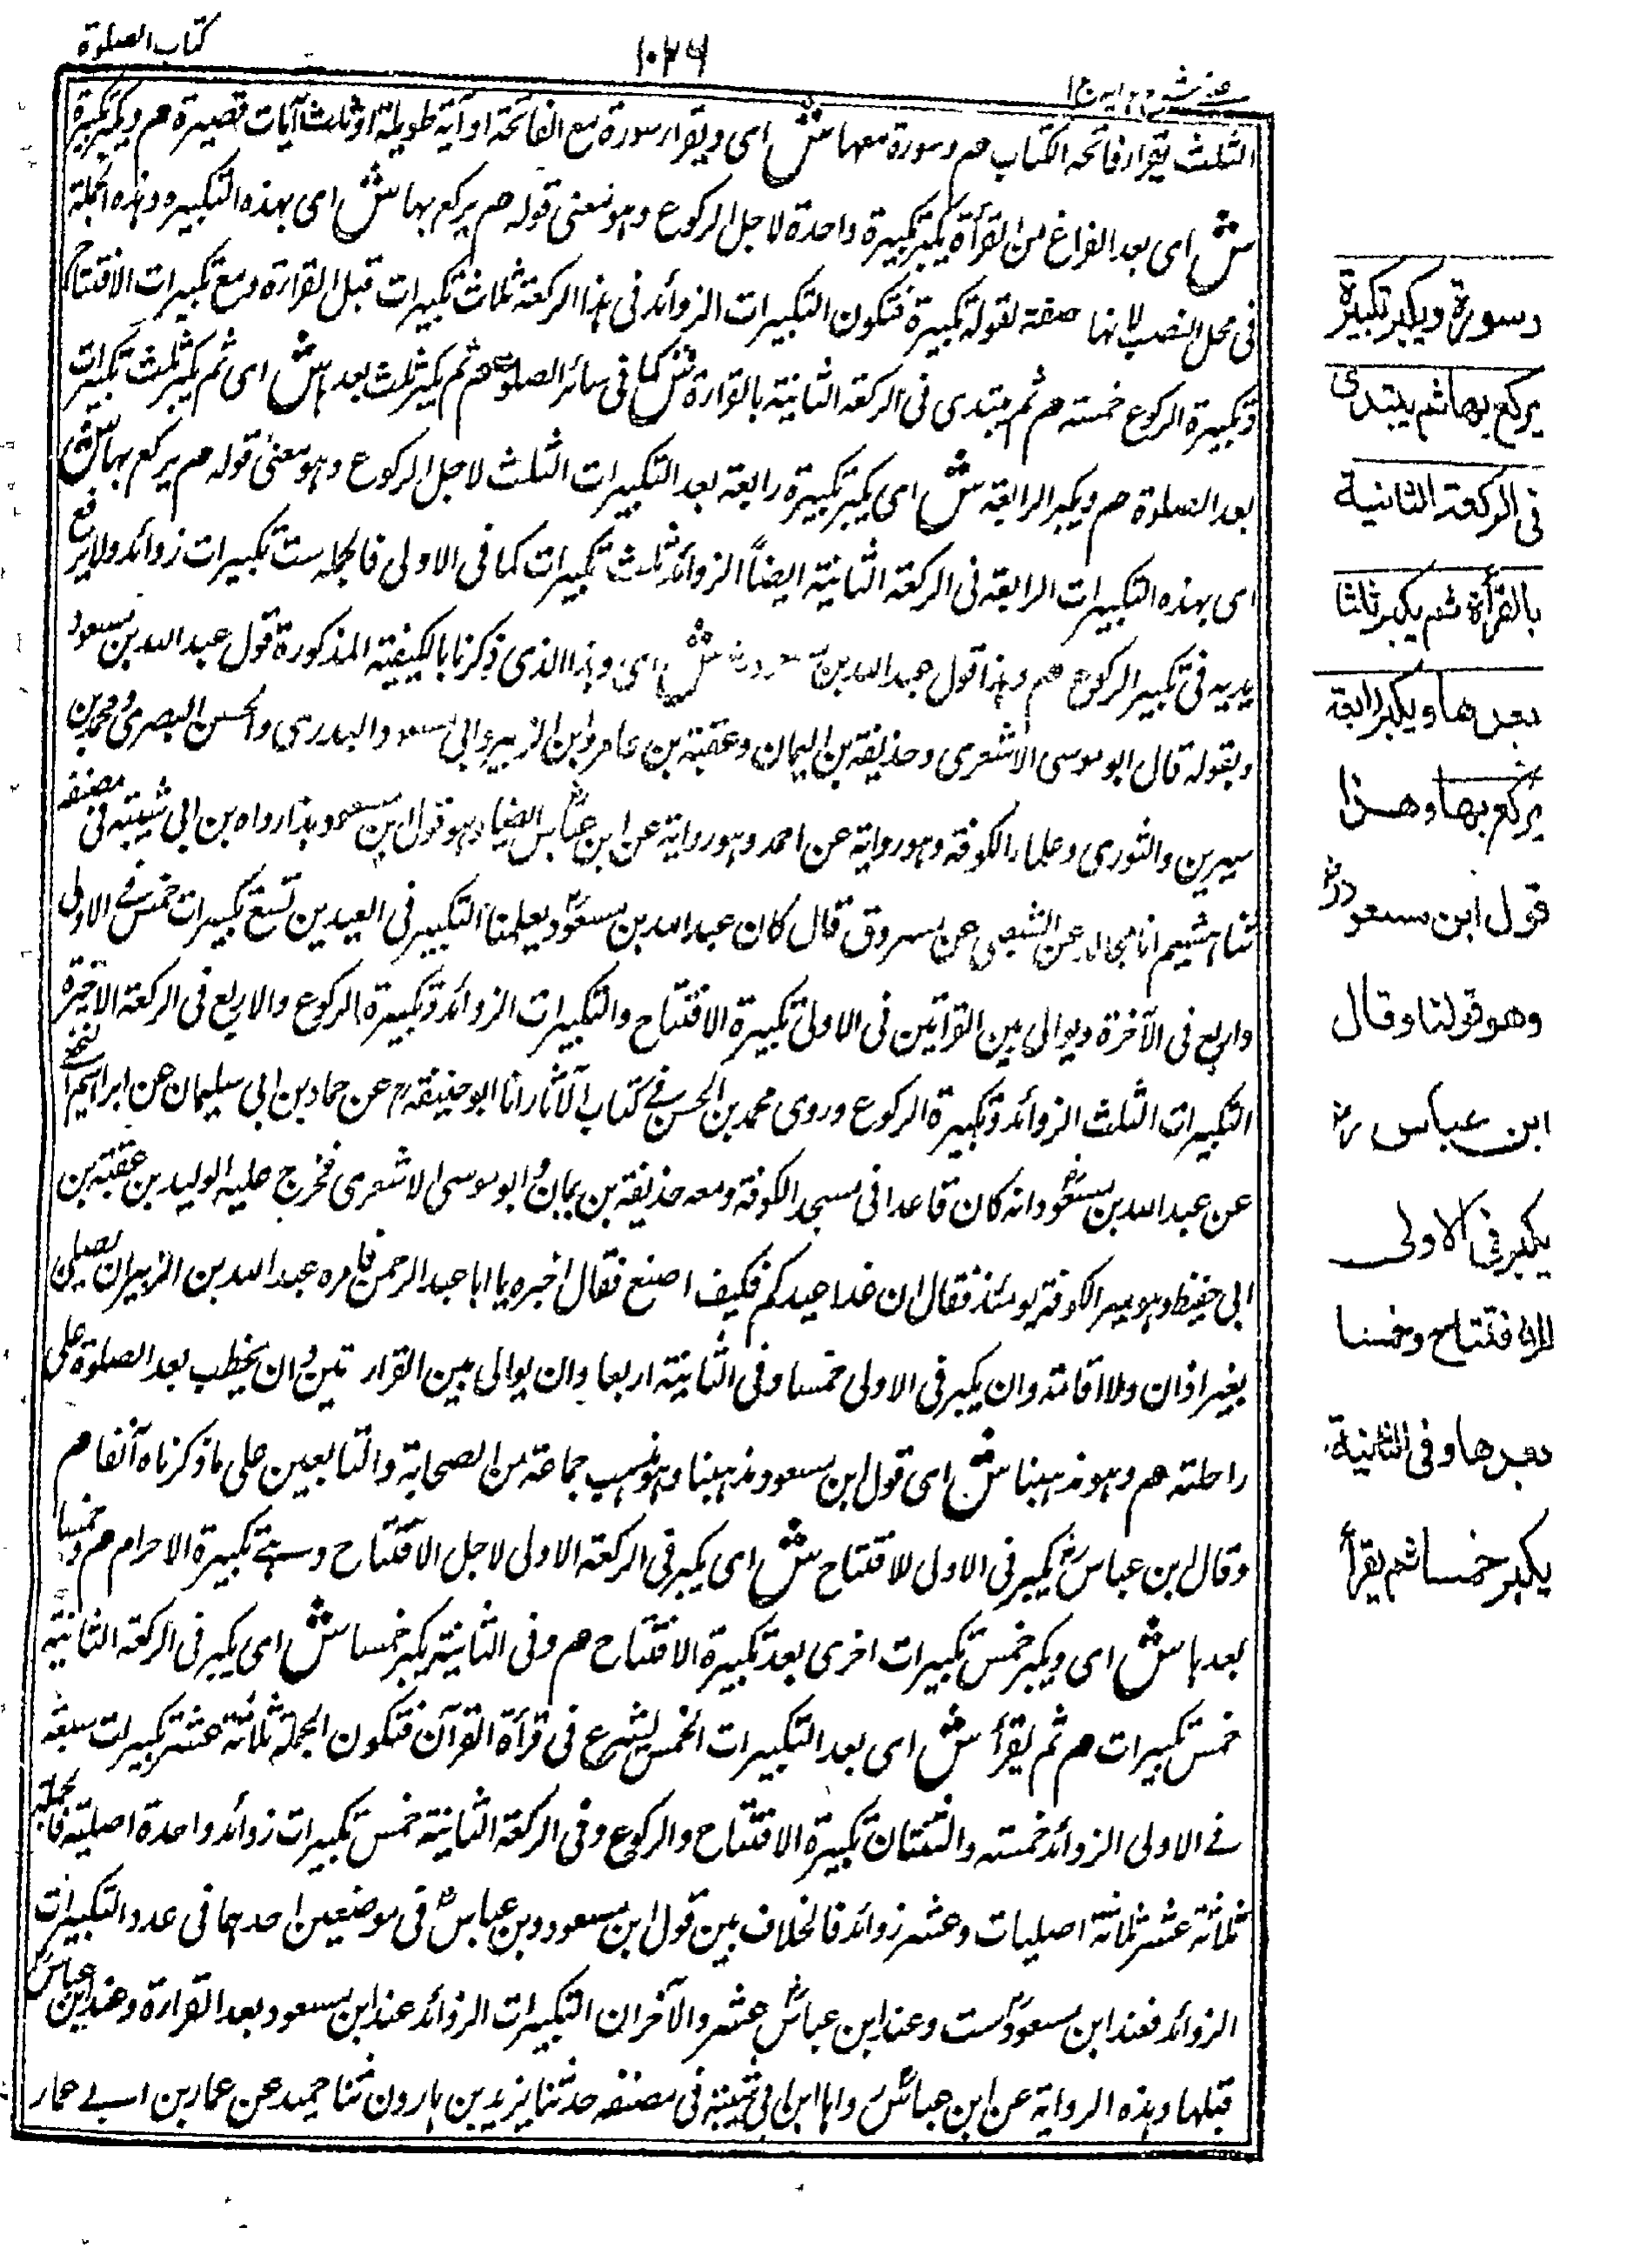 كتاب الصلوة
١٠٢٦
عينى شرح هدايه ج ١
الثلث يقرار فاتحه الكتاب هم وسورة معها ش اى ويقرار سورة مع الفاتحة او آية طويلة او ثلث آيات قصيرة هم ويكبر تكبيرة
ش اى بعد الفراغ من القرأة يكبر تكبيرة واحدة لاجل الركوع وهو معنى قوله هم يركع بها ش اى بهذه التكبيره وهذه الجملة
فى محل النصب لانها صفته لقوله تكبيرة فتكون التكبيرات الزوائد فى هذا الركعة ثلاث تكبيرات قبل القرارة ومع تكبيرات الافتتاح
وتكبيرة الركوع خمسته هم ثم يبتدى فى الركعة الثانية بالقرارة ش كما فى سائر الصلوة هم ثم يكبر ثلث بعدها ش اى ثم يكبر ثلث تكبيرات
بعد الصلوة هم ويكبر الرابعة ش اى يكبر تكبيرة رابعة بعد التكبيرات الثلث لاجل الركوع وهو معنى قوله هم يركع بها ش
اى بهذه التكبيرات الرابعة فى الركعة الثانية ايضاً الزوائد ثلث تكبيرات كما فى الاولى فالجمله ست تكبيرات زوائد ولا يرفع
يديه فى تكبير الركوع هم وهذا قول عبد الله بن مسعود ش اى وهذا الذى ذكرنا بالكيفية المذكورة قول عبد الله بن مسعود
وبقوله قال ابو موسى الاشعرى وحذيفة بن اليمان وعقبة بن عامر وابن الزبير وابى مسعود والبدرى والحسن البصرى ومحمد بن
سيرين والثورى وعلماء الكوفة وهو رواية عن احمد وهو رواية عن ابن عباس ايضا وهو قول ابن مسعود وهذا رواه بن ابى شيبة فى مصنفه
ثنا هشيم انا مجالد عن الشعبى عن مسروق قال كان عبد الله بن مسعود يعلمنا التكبير فى العيدين تسع تكبيرات خمس فے الاولى
واربع فى الآخرة ويوالى بين القراتين فى الاولى تكبيرة الافتتاح والتكبيرات الزوائد وتكبيرة الركوع والاربع فى الركعة الاخيرة
التكبيرات الثلث الزوائد وتكبيرة الركوع وروى محمد بن الحسن فے كتاب الآثار انا ابو حنيفة رح عن حماد بن ابى سليمان عن ابراهيم النخعى
عن عبد الله بن مسعود انه كان قاعدا فى مسجد الكوفة ومعه حذيفة بن يمان وابو موسى الاشعرى فخرج عليه الوليد بن عقبة بن
ابى حفيظ وهو امير الكوفة يومئذ فقال ان غدا عيدكم فكيف اصنع فقال اخبره يا ابا عبد الرحمن فامره عبد الله بن الزبير ان يصلى
بغير اذان ولا اقامة وان يكبر فى الاولى خمسا وفى الثانية اربعا وان يوالى بين القرارتين وان يخطب بعد الصلوة على
راحلته هم وهو مذهبنا ش اى قول ابن مسعود مذهبنا وهو مذهب جماعة من الصحابة والتابعين على ما ذكرناه آنفا هم
وقال ابن عباس رض يكبر فى الاولى للافتتاح ش اى يكبر فى الركعة الاولى لاجل الافتتاح وهے تكبيرة الاحرام هم وخمسا
بعدها ش اى ويكبر خمس تكبيرات اخرى بعد تكبيرة الافتتاح هم وفى الثانية يكبر خمسا ش اى يكبر فى الركعة الثانية
خمس تكبيرات هم ثم يقرأ ش اى بعد التكبيرات الخمس يشرع فى قرأة القرآن فتكون الجملة ثلاثة عشر تكبيرات سبعة
فے الاولى الزوائد خمسته والثنتان تكبيرة الافتتاح والركوع وفى الركعة الثانية خمس تكبيرات زوائد واحدة اصلية فالجملة
ثلاثة عشر ثلاثة اصليات وعشر زوائد فالخلاف بين قول ابن مسعود وبن عباس فى موضعين احدهما فى عدد التكبيرات
الزوائد فعند ابن مسعود ست وعند ابن عباس عشر والآخر ان التكبيرات الزوائد عند ابن مسعود بعد القرارة وعند ابن عباس
قبلها وهذه الرواية عن ابن عباس رواها ابن ابى شيبة فى مصنفه حدثنا يزيد بن هارون ثنا حميد عن عمار بن ابے عمار
وسورة ويكبر تكبيرة
يركع بها ثم يبتدى
فى الركعة الثانية
بالقرأة ثم يكبر ثلثا
بعدها ويكبر رابعة
يركع بها وهذا
قول ابن مسعود رض
وهو قولنا وقال
ابن عباس رض
يكبر فى الاولى
للافتتاح وخمسا
بعدها وفى الثانية
يكبر خمسا ثم يقرأ